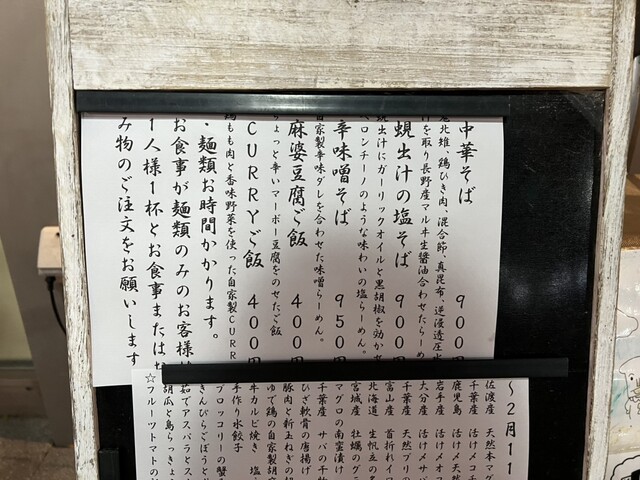 中華そば 900円
鶏ひき肉、混合節、真昆布、逆浸透圧水
を取り長野産マル井生醤油合わせたらーめ
蜆出汁の塩そば 900
蜆出汁にガーリックオイルと黒胡椒を効かせ
ペロンチーノのような味わいの塩らーめん。
辛味噌そば 950円
自家製辛味ダレを合わせた味噌らーめん。
麻婆豆腐ご飯 400円
ちょっと辛いマーボー豆腐をのせたご飯
CURRYご飯 400円
鶏もも肉と香味野菜を使った自家製CURR
・麺類お時間かかります。
お食事が麺類のみのお客様は
1人様1杯とお食事または
み物のご注文をお願いします
〜2月11
佐渡産 天然本マグ
千葉産 活〆コチ
鹿児島 活〆天然
岩手産 活〆オコ
大分産 活〆サバ
千葉産 天然ブリの
富山産 首折れイ
北海道 生帆立の
宮城産 牡蠣のグ
マグロの南蛮漬け
千葉産 サバの干物
ひざ軟骨の唐揚げ
豚肉と新玉ねぎの
ゆで鶏の自家製胡麻
牛カルビ焼き 塩
手作り水餃子
ブロッコリーの蟹
きんぴらごぼうと
茹でアスパラとス
胡瓜と島らっきょ
☆フルーツトマトの